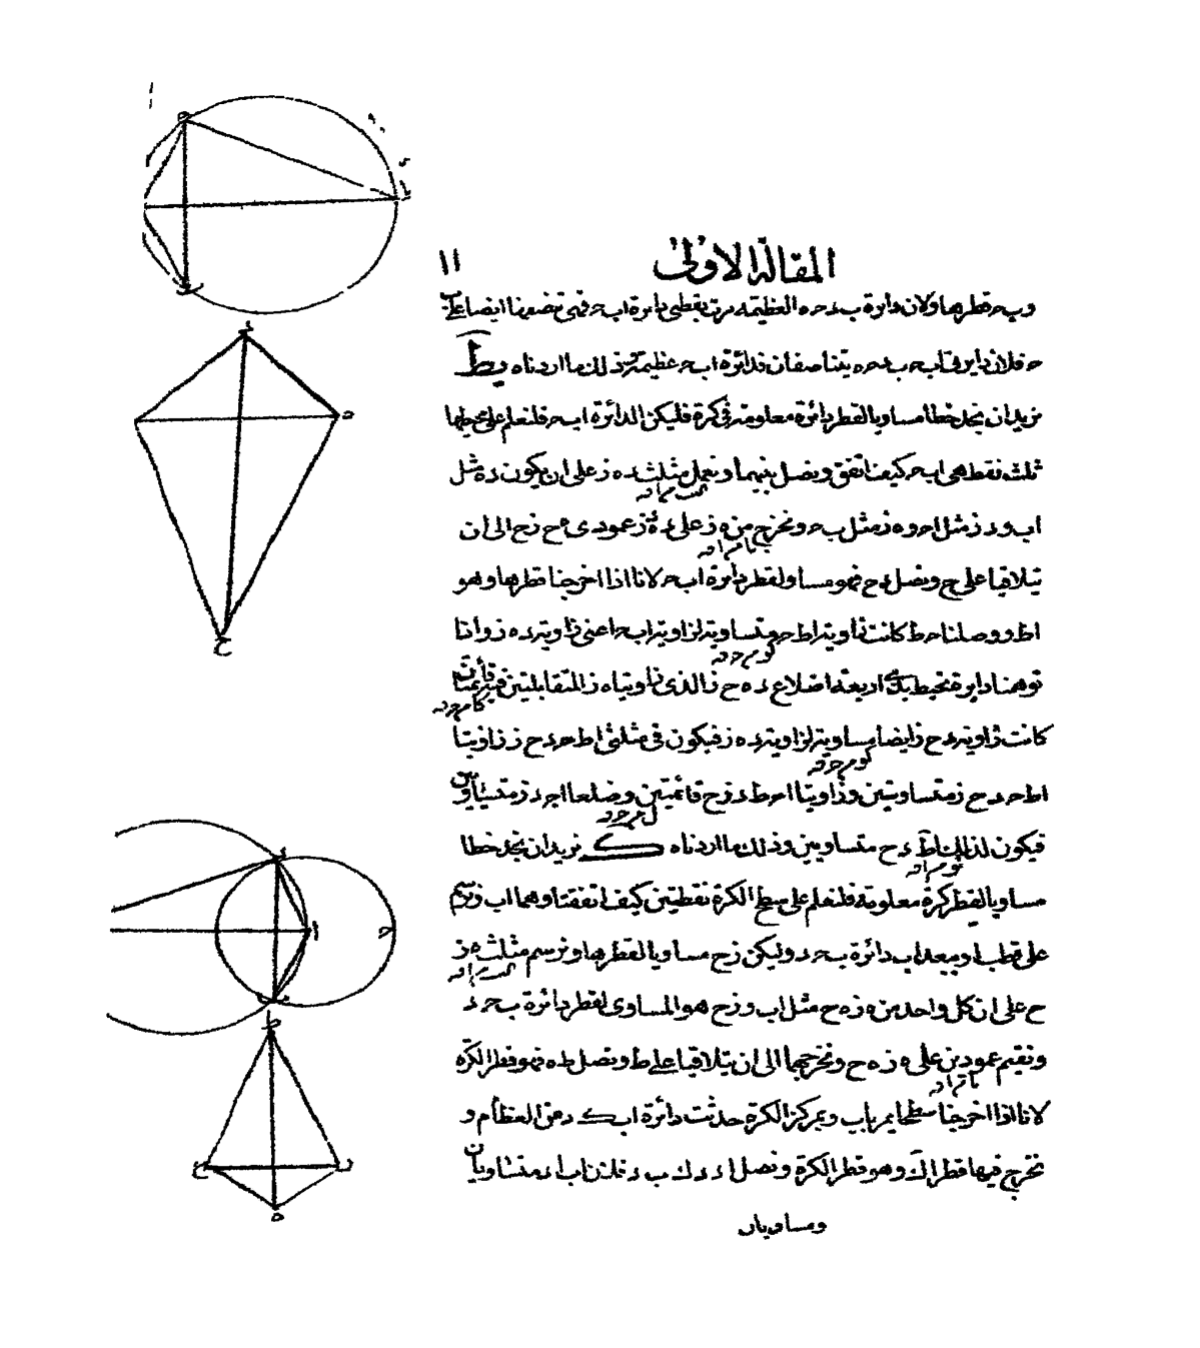 المقالة الاولى ١١
و ب ح قطرها ولان دائرة ب د ح ه العظيمة مرت بقطبى دائرة ا ب ح فهى تنصفها ايضا على ب
ح فلان دايرتى ا ب ح ب د ح ه يتناصفان فدائرة ا ب ح عظيمة وذلك ما اردناه يط
نريد ان نجد خطا مساويا لقطر دائرة معلومة فى كرة فليكن الدائرة ا ب ح فلنعلم على محيطها
ثلث نقط هى ا ب ح كيف اتفق ونصل بينهما ونعمل مثلث د ه ز على ان يكون د ه مثل
ا ب و د ز مثل ا ح و ه ز مثل ب ح ونخرج من ه ز على د ه د ز عمودى ه ح ز ح الى ان
يتلاقيا على ح ونصل د ح فهو مساو لقطر دائرة ا ب ح لانا اذا اخرجنا قطرها وهو
ا ط ووصلنا ح ط كانت زاوية ا ط ح متساوية لزاوية ا ب ح اعنى زاوية د ه ز واذا
توهمنا دايرة تحيط بذى اربعة اضلاع د ه ح ز الذى زاويتاه ز المتقابلتين فيه قائمتان
كانت زاوية د ح ز ايضا مساوية لزاوية د ه ز فيكون فى مثلثى ا ط ح د ح ز زاويتا
ا ط ح د ح ز متساويتين وزاويتا ا ح ط د ز ح قائمتين وضلعا ا ح د ز متساويين
فيكون لذلك ا ط د ح متساويين وذلك ما اردناه ك نريد ان نجد خطا
مساويا لقطر كرة معلومة فلنعلم على سطح الكرة نقطتين كيف اتفقتا وهما ا ب ونرسم
على قطب ا وببعد ا ب دائرة ب ح د وليكن ز ح مساويا لقطرها ونرسم مثلث ه ز
ح على ان كل واحد من ه ز ه ح مثل ا ب و ز ح هو المساوى لقطر دائرة ب ح د
ونقيم عمودين على ه ز ه ح ونخرجهما الى ان يتلاقيا على ط ونصل ط ه فهو قطر الكرة
لانا اذا اخرجنا سطحا يمر با ب وبمركز الكرة حدثت دائرة ا ب ك د من العظام و
نخرج فيها قطر ا ك وهو قطر الكرة ونصل ا د د ك ب د فلان ا ب ا د متساويان
ومساويان